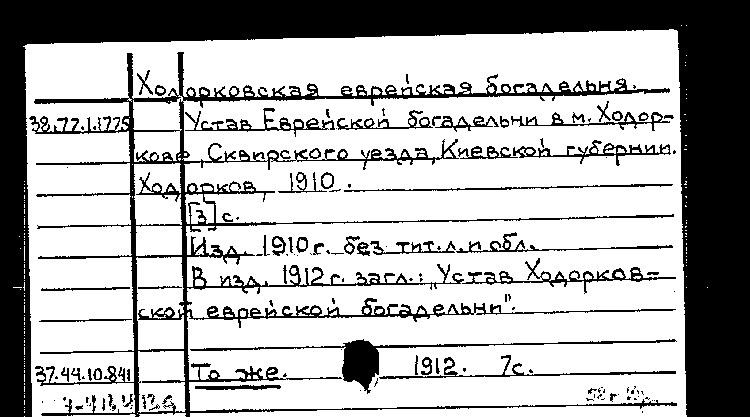 Ходорковская еврейская богадельня.
38.77.1.1775 Устав Еврейской богадельни в м. Ходор=
кове, Сквирского уезда, Киевской губернии.
Ходорков, 1910.
[3] с.
Изд. 1910 г. без тит. л. и обл.
В изд. 1912 г. загл.: „Устав Ходорков=
ской еврейской богадельни".
37.44.10.841 То же. 1912. 7с.